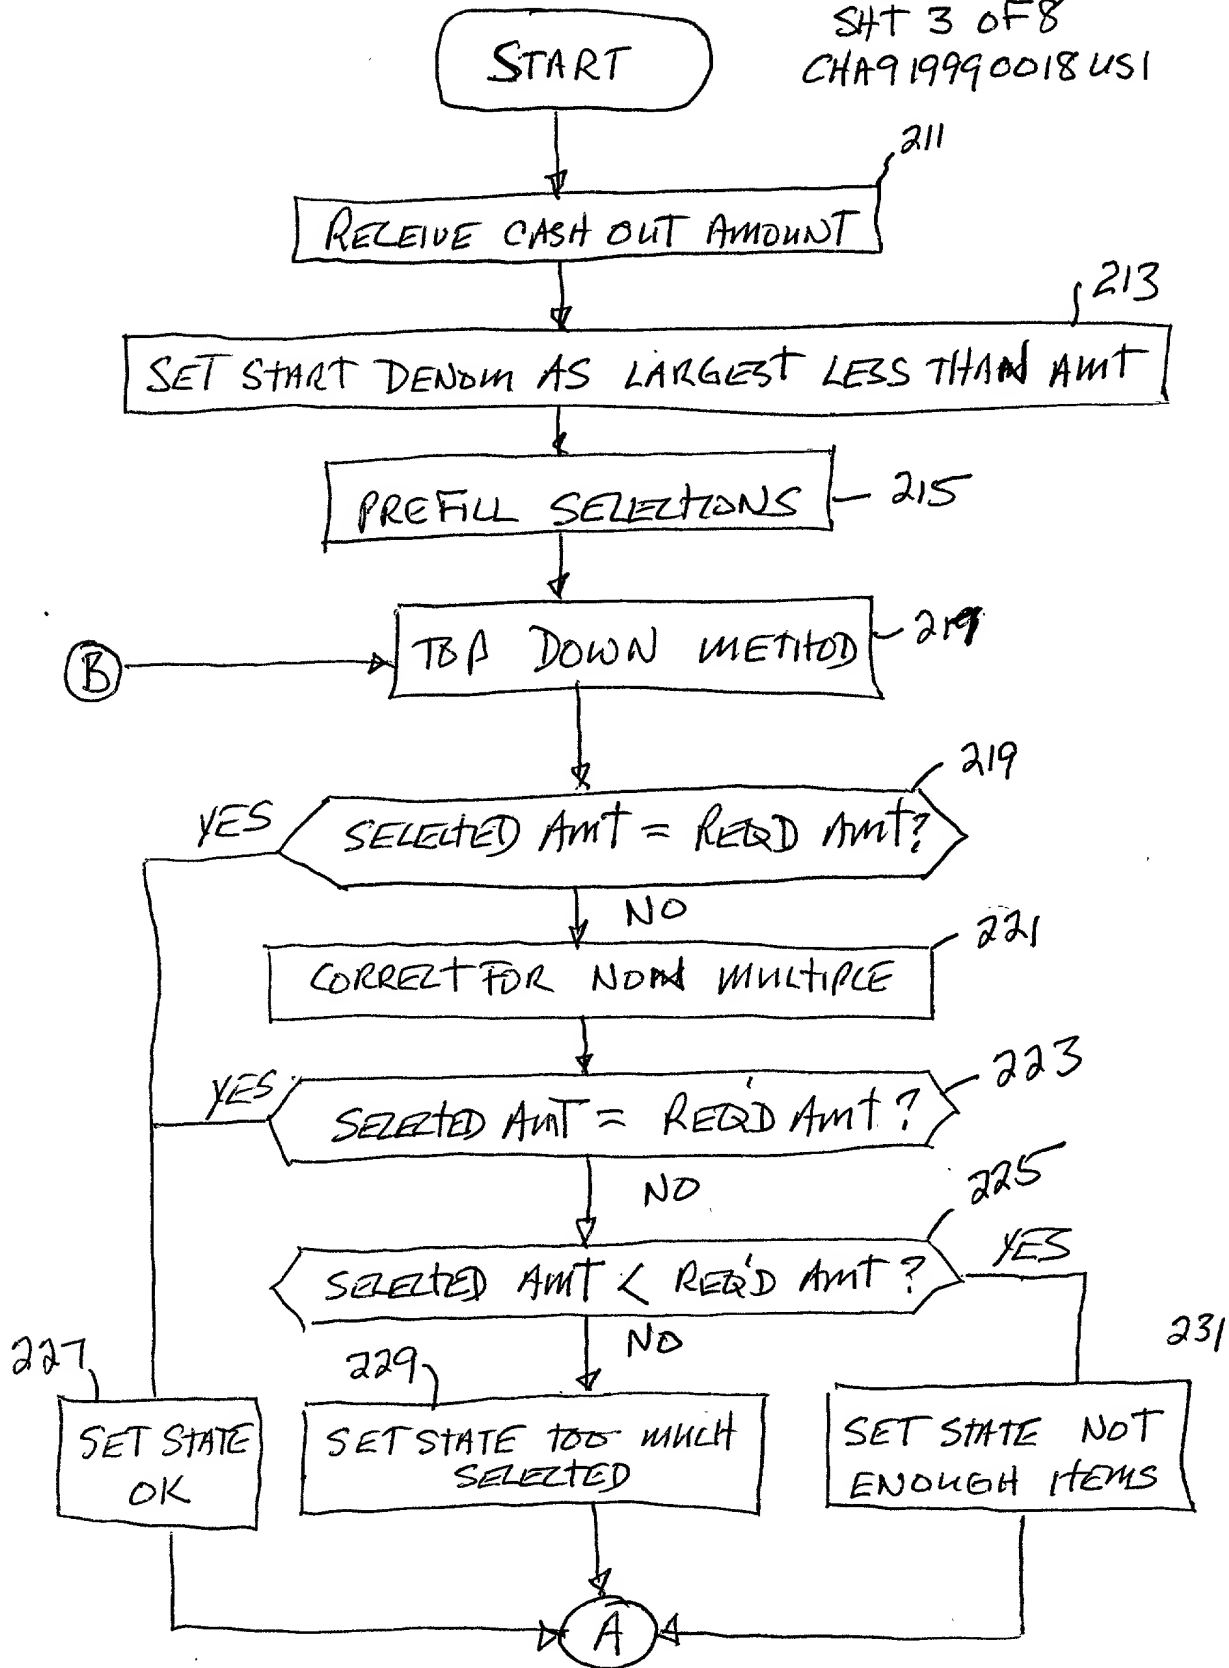 SHT 3 OF 8
CHA919990018US1
START
211
RECEIVE CASH OUT AMOUNT
213
SET START DENOM AS LARGEST LESS THAN AMT
PREFILL SELECTIONS
215
B
TOP DOWN METHOD
219
219
YES
SELECTED AMT = REQD AMT?
NO
221
CORRECT FOR NON MULTIPLE
223
YES
SELECTED AMT = REQ'D AMT?
NO
225
SELECTED AMT < REQ'D AMT?
YES
NO
227
229
231
SET STATE
OK
SET STATE TOO MUCH
SELECTED
SET STATE NOT
ENOUGH ITEMS
A